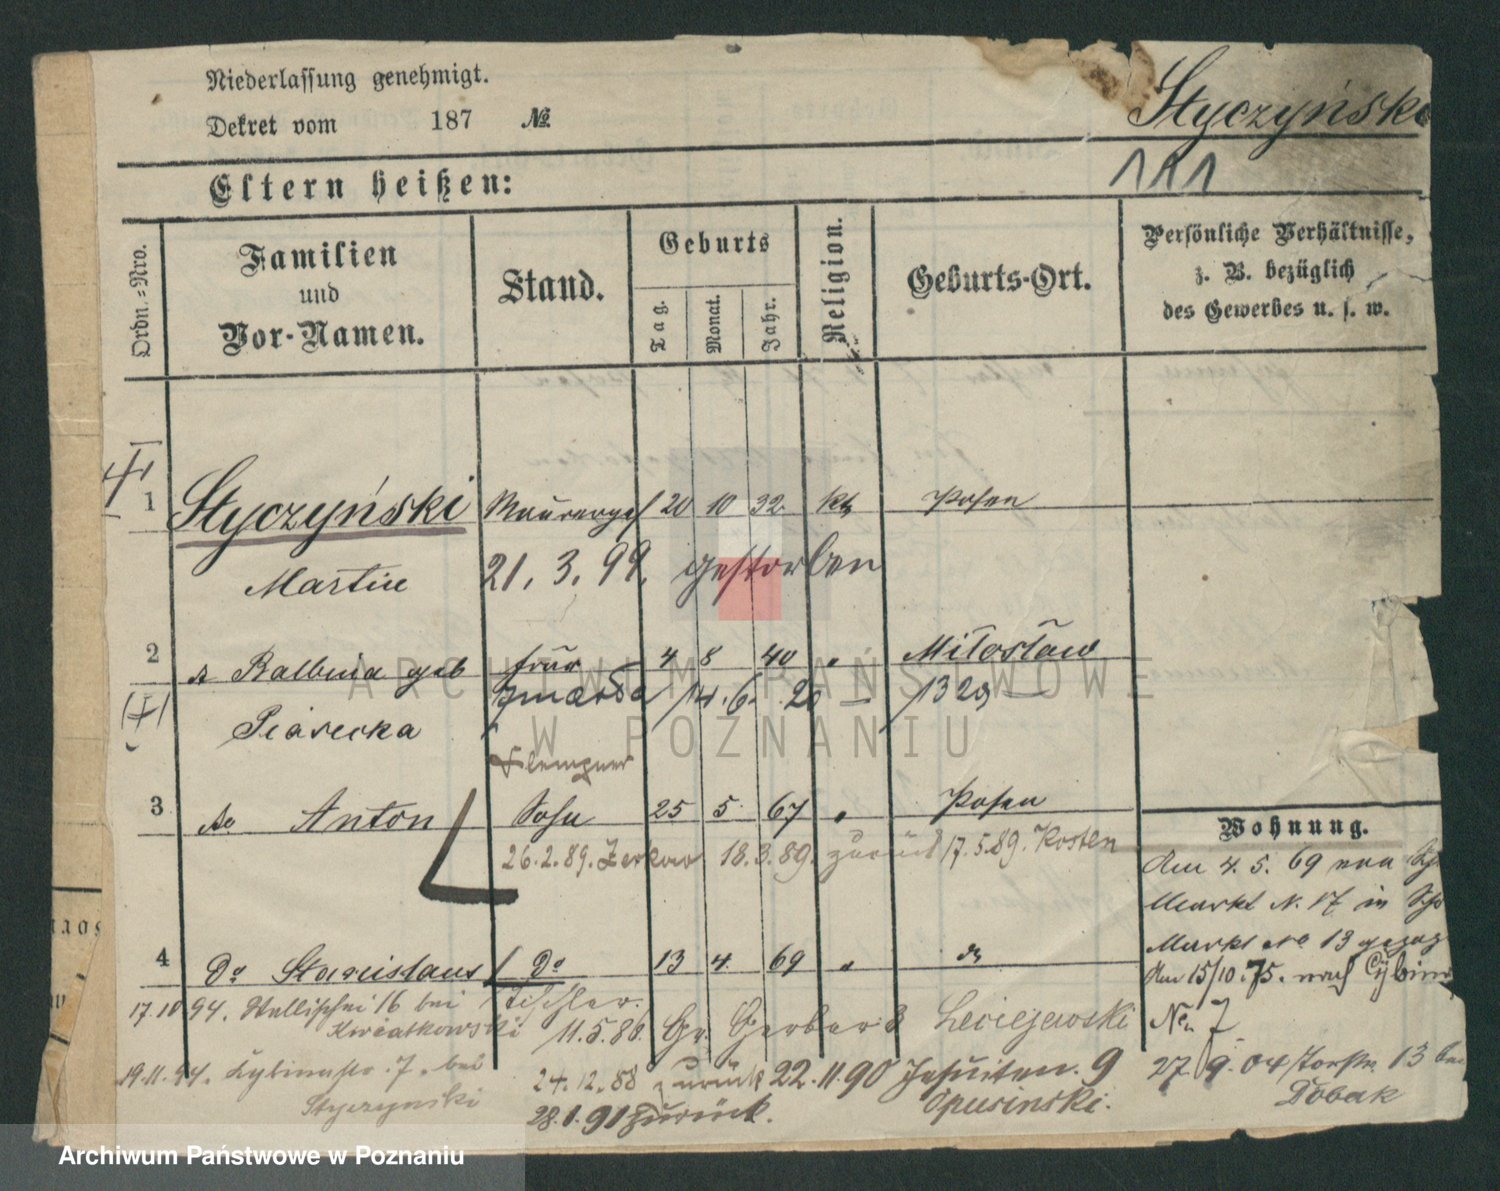 Niederlassung genehmigt.
Dekret vom 187 №
Styczyński
Eltern heißen:
Ordn.=Nro.
Familien
und
Vor-Namen.
Stand.
Geburts
Tag.
Monat.
Jahr.
Religion.
Geburts-Ort.
Persönliche Verhältnisse,
z. B. bezüglich
des Gewerbes u. s. w.
1 Styczyński Maurerges 20 10 32 kth Posen
Martin 21. 3. 99. gestorben
2 Balbina geb frau 4 8 40 " Miłosław
14. 6. 20
Piasecka
Klempner
3 do Anton Sohn 25 5 67 " Posen
26.2.89. Zerkow 18.3.89. zurück 17.5.89. Kosten
Wohnung.
Am 4. 5. 69 von
Markt N. 17 in
Markt No 13
Am 15/10. 75. nach Cybina
No 7
4 Do Stanislaus Do 13 4 69 " do
17.10 94. Wallischei 16 bei Tischler.
Kwiatkowski 11.5.86. Gr. Gerber 8
19.11.94. Cybinastr. 7. bei 24.12.88 zurück 22.11.90 Jesuiten. 9
Styczynski 28.1.91 zurück. Opusinski.
27. 9. 04 13 bei
Dobak
ARCHIWUM PAŃSTWOWE
W POZNANIU
Archiwum Państwowe w Poznaniu